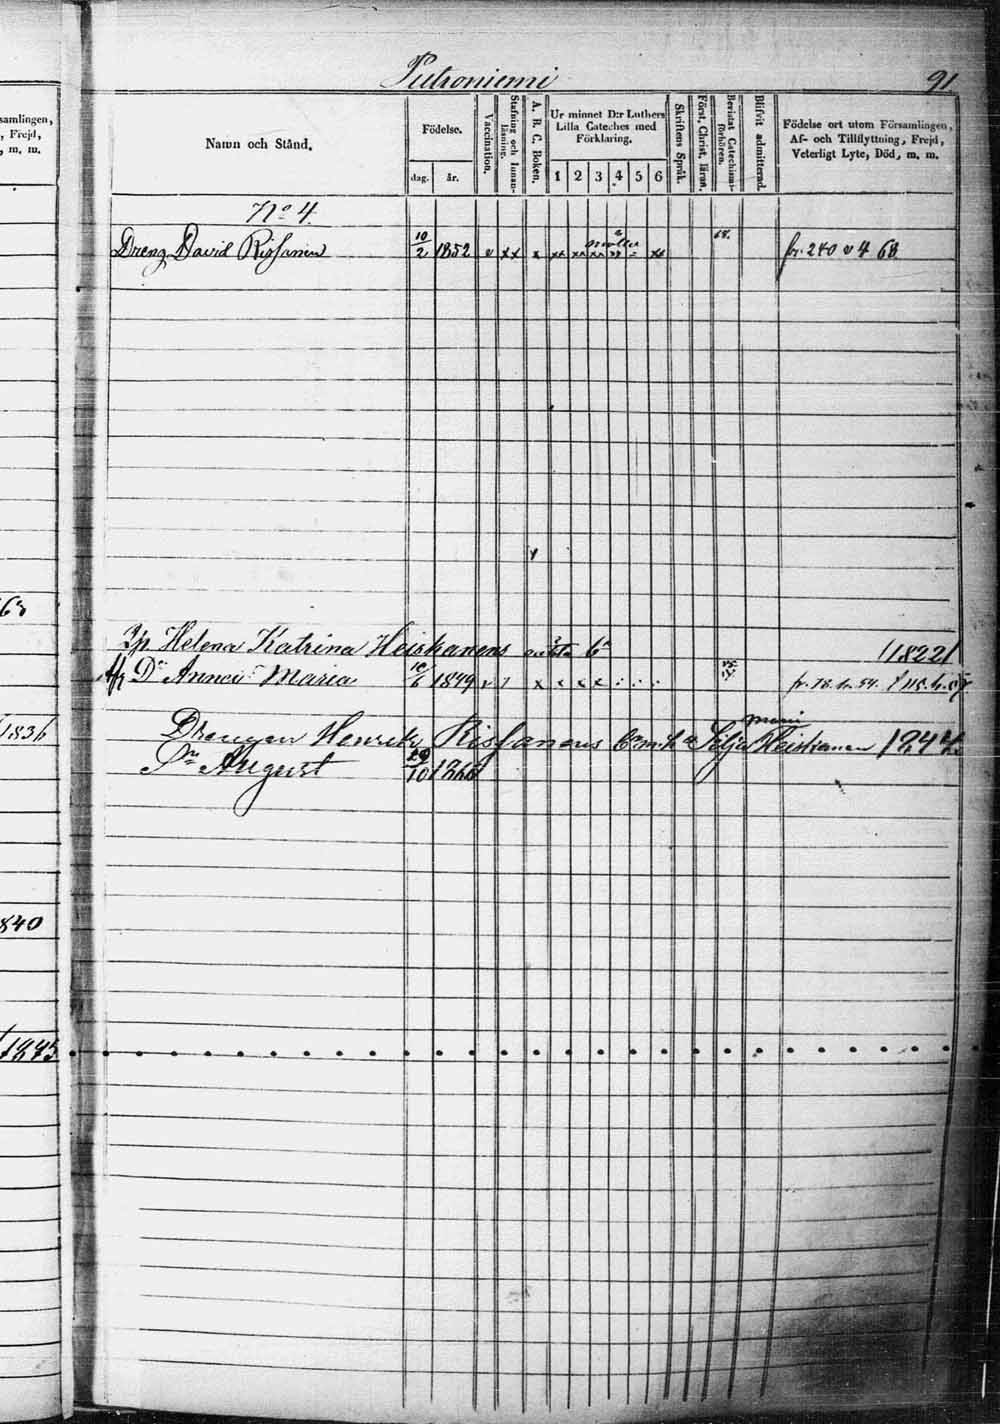 Putroniemi 91
samlingen,
, Frejd,
, m. m.
Namn och Stånd.
Födelse.
dag. år.
Vaccination.
Stafning och Innan-
läsning.
A. B. C. Boken.
Ur minnet D:r Luthers
Lilla Cateches med
Förklaring.
1 2 3 4 5 6
Skriftens Språk.
Först. Christ. läran.
Bevistat Catechismi-
förhören.
Blifvit admitterad.
Födelse ort utom Församlingen,
Af- och Tillflyttning, Frejd,
Veterligt Lyte, Död, m. m.
No 4.
Dreng David Rissanen 10/2 1852 v xx x xx xx xx xx 68. fr. 240 v 4 68
63
Helena Katrina Heiskanens 1822
Dr Anna Maria 1849 v x x x x fr. 78. 54.
1836
Drengen Henrik Rissanens Silja Maria Heiskanen 1844
Sn August 29/10 1866
840
1845